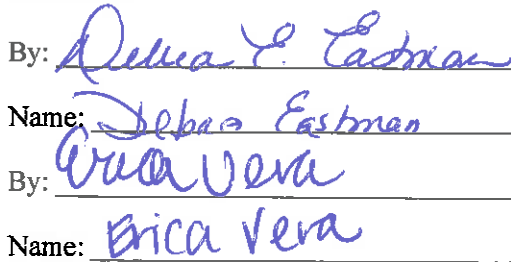 By: Debra E. Eastman
Name: Debra Eastman
By: Erica Vera
Name: Erica Vera